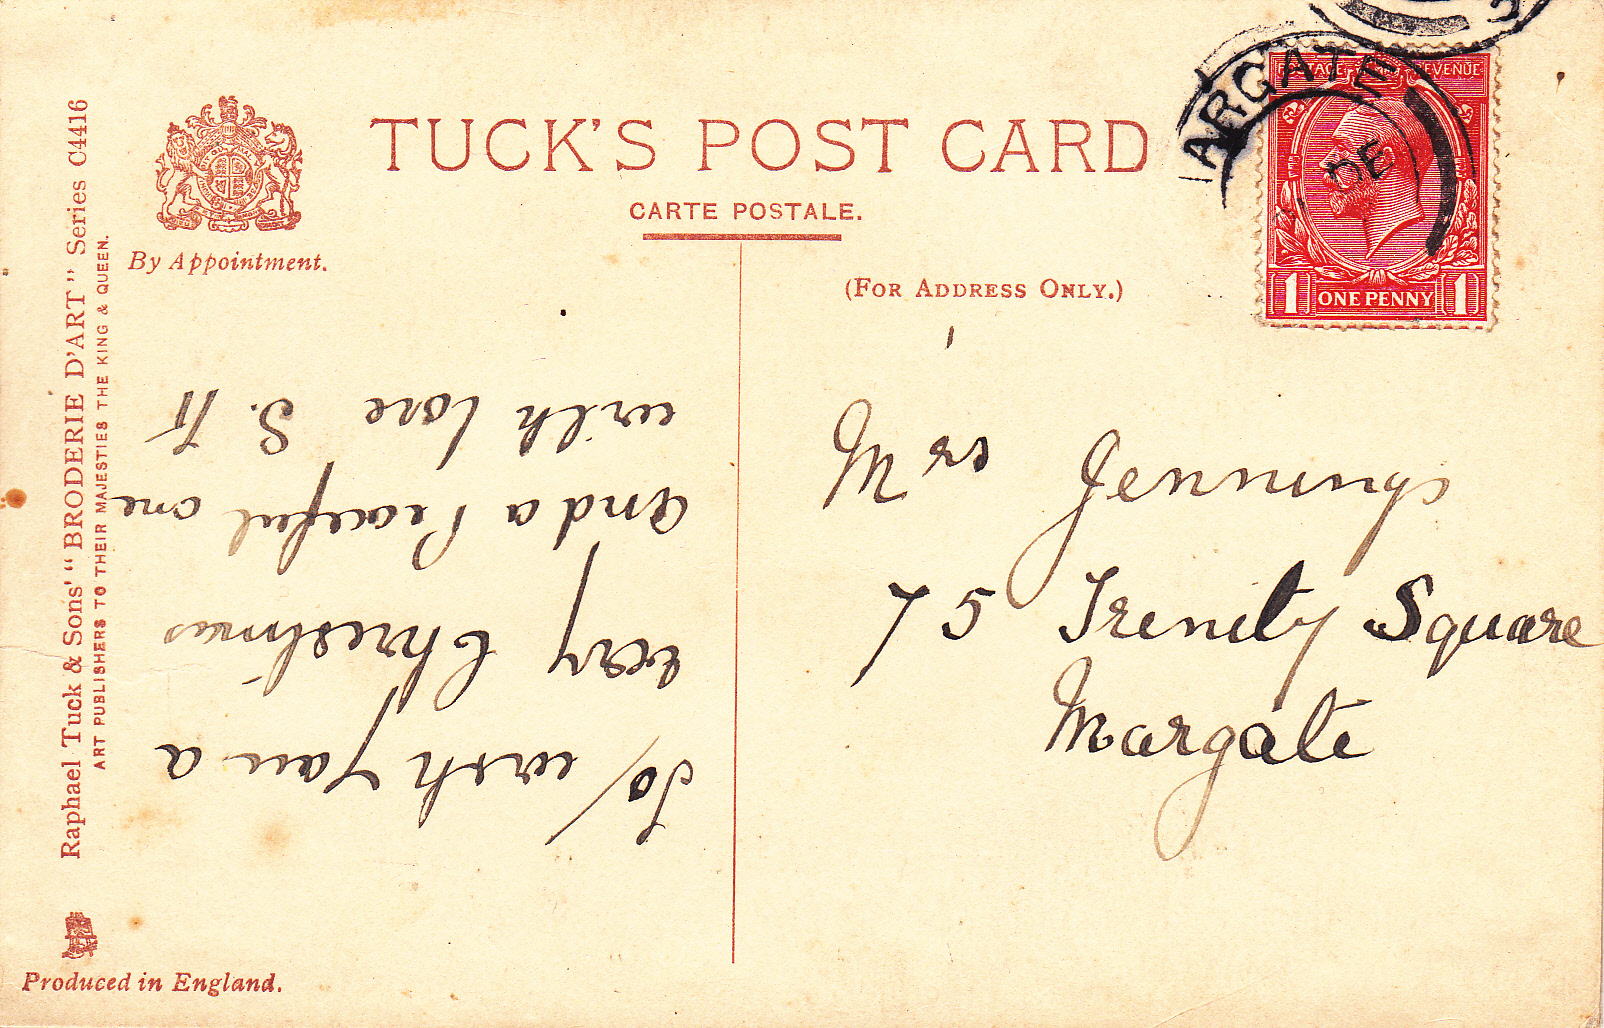 TUCK'S POST CARD
CARTE POSTALE.
By Appointment.
(FOR ADDRESS ONLY.)
Raphael Tuck & Sons' "BRODERIE D'ART" Series C4416
ART PUBLISHERS TO THEIR MAJESTIES THE KING & QUEEN.
Produced in England.
POSTAGE REVENUE
1 ONE PENNY 1
MARGATE
DE
To wish you a
very Christmas
and a Peaceful one
with love S. H
Mrs Jennings
75 Trenity Square
Margate